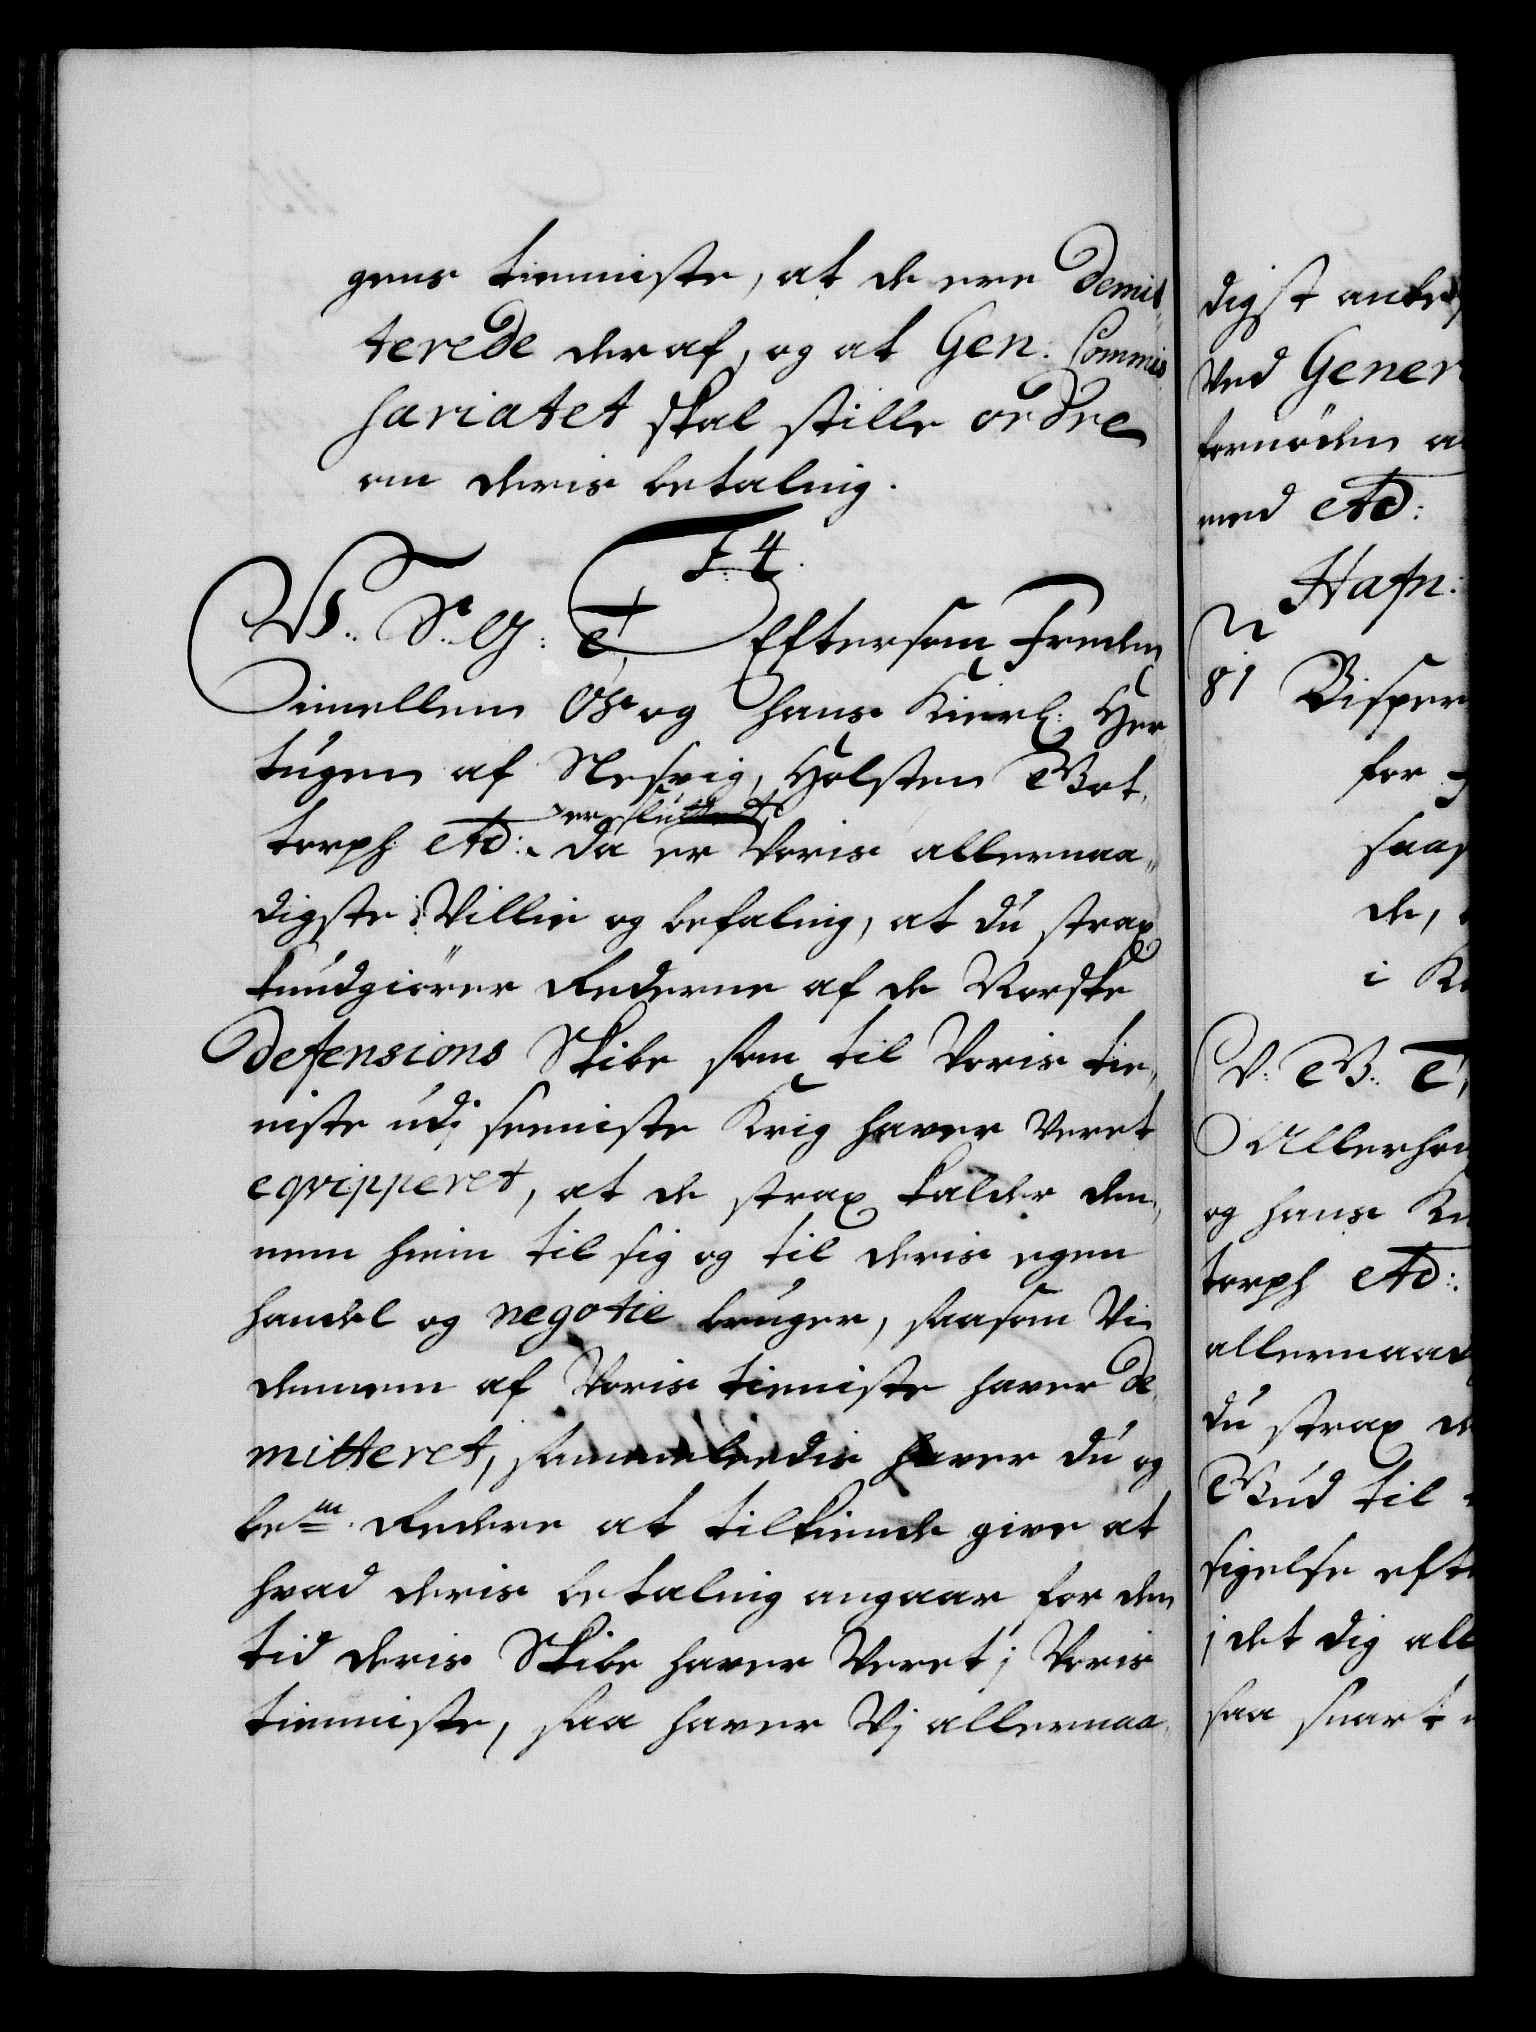 gens tienniste, at de ere Demit-
terede deraf, og at Gen: Commis
sariatet skal stille ordre
om deris betaling.
F4.
V.. S. G: T. Eftersom Freden
imellem Os og hans Kierl: Her
tugen af Slesvig, Holsten Got,
er sluttet
torph etc: da er Voris allernaa„
digste Villie og befaling, at du strax
kundgiører Rederne af de Norske
Defensions Skibe som til Voris tie„
niste udj seeniste Krig haver veret
eqvipperet, at de strax kalder den„
nem hiem til sig og til deris egen
handel og negotie bruger, saasom Vi
dennem af Voris tieniste haver De„
mitteret, sammeledis haver du og
bem. Redere at tilkiende give at
hvad deris betaling angaar for den
tid deris Skibe haver veret i Voris
tienniste, saa haver Vj allernaa„
digst anbe
ved Gener
fornøden a
med etc:
Hafn:
81 Bisper
for
saa
de,
i K
V: G.. T.
Allerhø
og hans Ki
torph etc:
allernaad
du strax d
Gud til
sigelse efte
j det dig all
saa snart